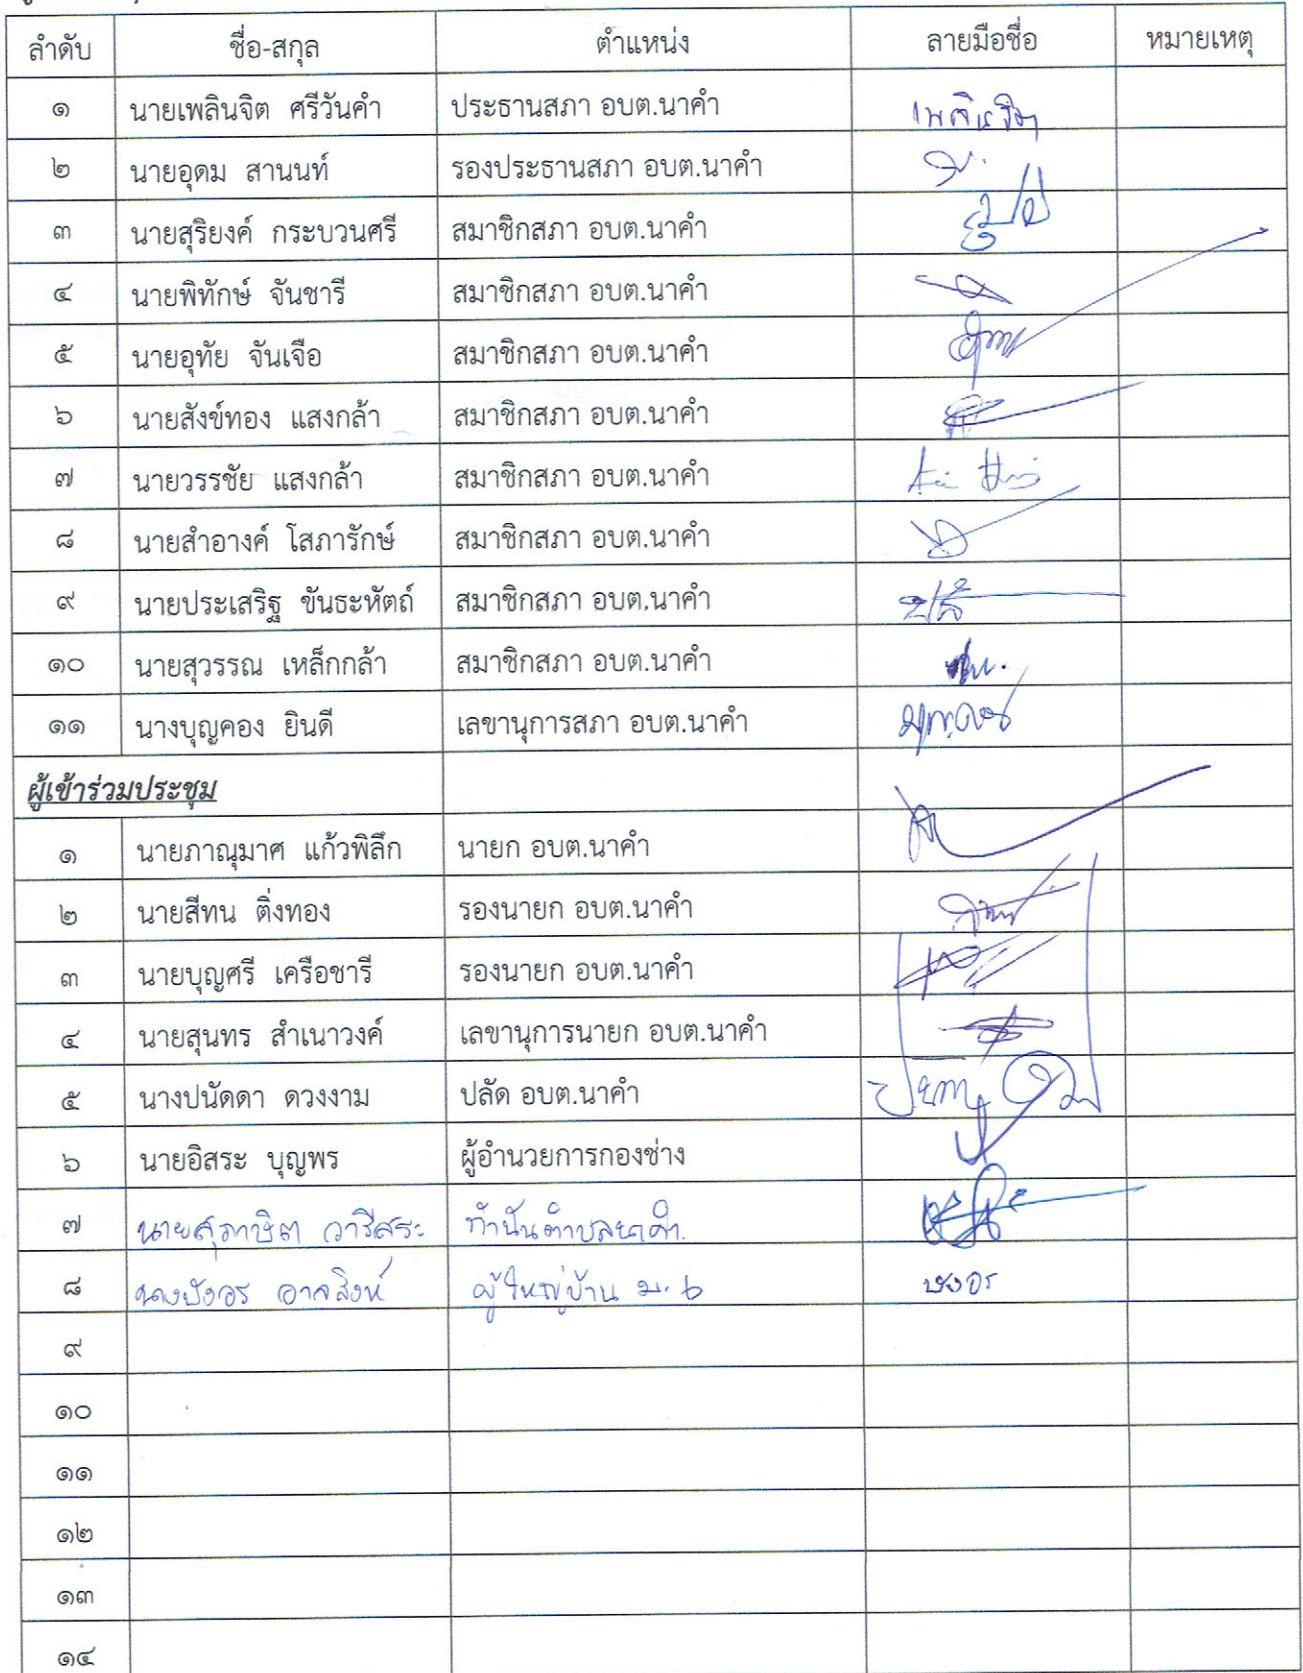 ลำดับ ชื่อ-สกุล ตำแหน่ง ลายมือชื่อ หมายเหตุ
๑ นายเพลินจิต ศรีวันคำ ประธานสภา อบต.นาคำ เพลินจิต
๒ นายอุดม สานนท์ รองประธานสภา อบต.นาคำ
๓ นายสุริยงค์ กระบวนศรี สมาชิกสภา อบต.นาคำ
๔ นายพิทักษ์ จันชารี สมาชิกสภา อบต.นาคำ
๕ นายอุทัย จันเจือ สมาชิกสภา อบต.นาคำ
๖ นายสังข์ทอง แสงกล้า สมาชิกสภา อบต.นาคำ
๗ นายวรรชัย แสงกล้า สมาชิกสภา อบต.นาคำ
๘ นายสำอางค์ โสภารักษ์ สมาชิกสภา อบต.นาคำ
๙ นายประเสริฐ ขันธะหัตถ์ สมาชิกสภา อบต.นาคำ
๑๐ นายสุวรรณ เหล็กกล้า สมาชิกสภา อบต.นาคำ
๑๑ นางบุญคอง ยินดี เลขานุการสภา อบต.นาคำ
ผู้เข้าร่วมประชุม
๑ นายภาณุมาศ แก้วพิลึก นายก อบต.นาคำ
๒ นายสีทน ติ่งทอง รองนายก อบต.นาคำ
๓ นายบุญศรี เครือชารี รองนายก อบต.นาคำ
๔ นายสุนทร สำเนาวงค์ เลขานุการนายก อบต.นาคำ
๕ นางปนัดดา ดวงงาม ปลัด อบต.นาคำ
๖ นายอิสระ บุญพร ผู้อำนวยการกองช่าง
๗ นายสุภาษิต วารีสระ กำนันตำบลนาคำ
๘ นางบังอร อาจสิงห์ ผู้ใหญ่บ้าน ม.๖ บังอร
๙
๑๐
๑๑
๑๒
๑๓
๑๔